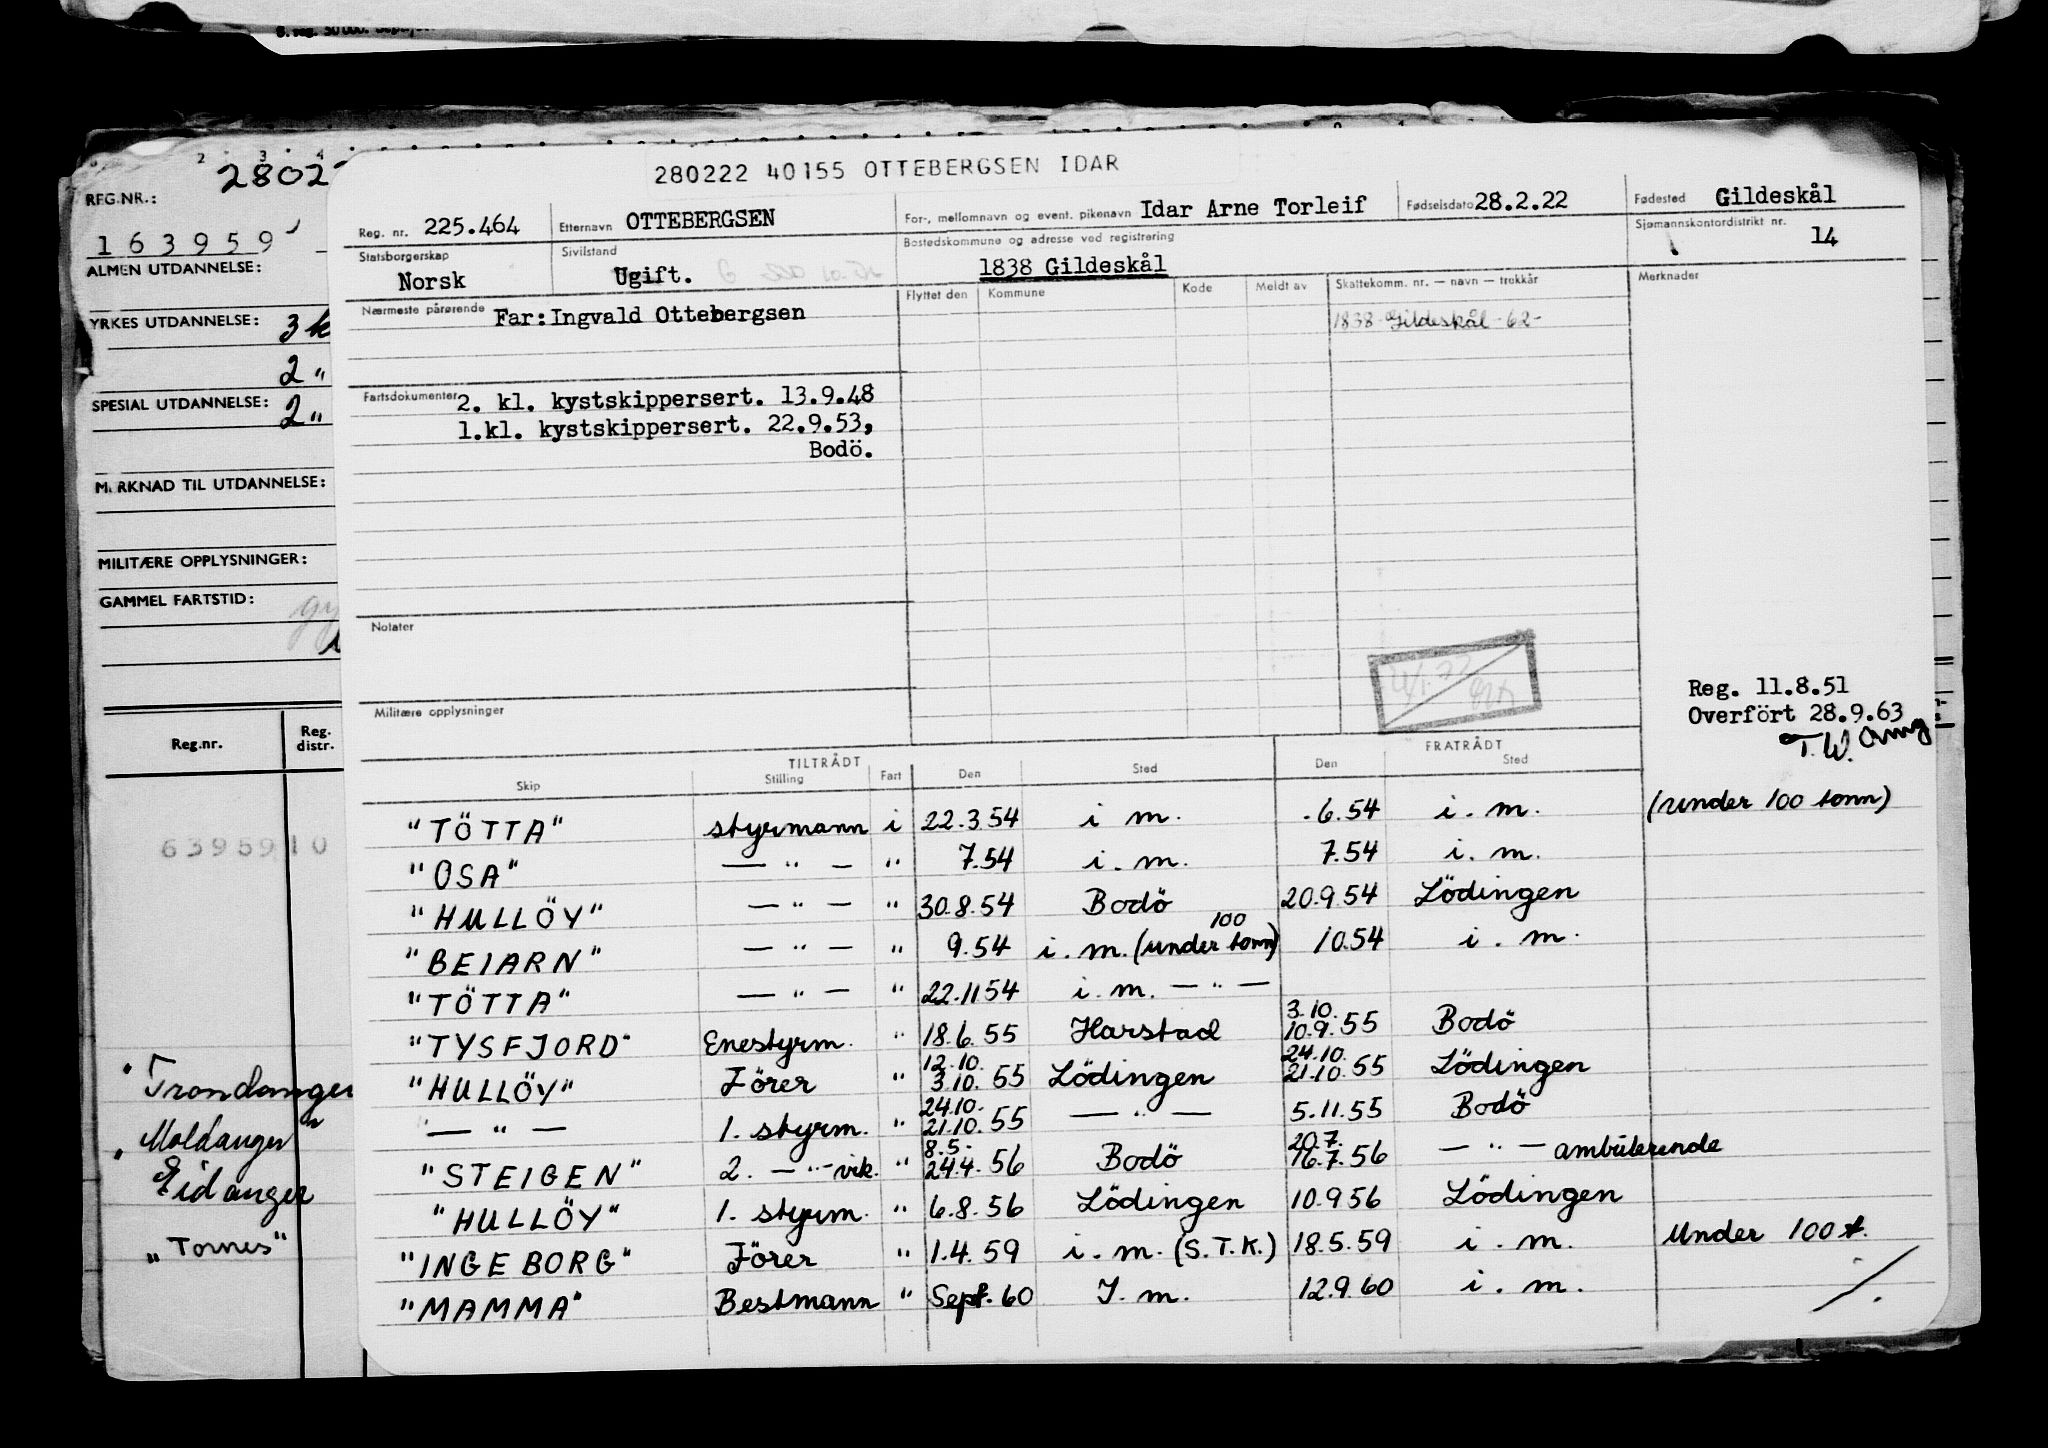 280222 40155 OTTEBERGSEN IDAR
REG.NR.:
163959
ALMEN UTDANNELSE:
YRKES UTDANNELSE: 3 k
2 "
SPESIAL UTDANNELSE: 2 "
MERKNAD TIL UTDANNELSE:
MILITÆRE OPPLYSNINGER:
GAMMEL FARTSTID:
Reg.nr. Reg. distr.
6395910
"Trondanger
"Moldanger"
Eidanger
"Tornes"
Reg. nr. 225.464 Etternavn OTTEBERGSEN For-, mellomnavn og event. pikenavn Idar Arne Torleif Fødselsdato 28.2.22 Fødested Gildeskål
Statsborgerskap Norsk Sivilstand Ugift. Bostedskommune og adresse ved registrering 1838 Gildeskål Sjømannskontordistrikt nr. 14
Nærmeste pårørende Far: Ingvald Ottebergsen Flyttet den Kommune Kode Meldt av Skattekomm. nr. — navn — trekkår Merknader
1838 Gildeskål -62-
Fartsdokumenter 2. kl. kystskippersert. 13.9.48
1.kl. kystskippersert. 22.9.53,
Bodö.
Notater
Militære opplysninger
Reg. 11.8.51
Overfört 28.9.63
TILTRÅDT FRATRÅDT
Skip Stilling Fart Den Sted Den Sted
"TÖTTA" styrmann i 22.3.54 i m. .6.54 i. m. (under 100 tonn)
"OSA" — " — " 7.54 i. m. 7.54 i. m.
"HULLÖY" — " — " 30.8.54 Bodö 20.9.54 Lödingen
"BEIARN" — " — " 9.54 i. m. (under 100 tonn) 10.54 i. m.
"TÖTTA" — " — " 22.11.54 i. m. — " —
"TYSFJORD" Enestyrm. " 18.6.55 Harstad 3.10. 10.9.55 Bodö
"HULLÖY" Förer " 12.10. 3.10.55 Lödingen 24.10. 21.10.55 Lödingen
— " — 1. styrm. " 24.10. 21.10.55 — " — 5.11.55 Bodö
"STEIGEN" 2. — " — vik. " 8.5. 24.4.56 Bodö 20.7. 16.7.56 — " — ambulerende
"HULLÖY" 1. styrm. " 6.8.56 Lödingen 10.9.56 Lödingen
"INGEBORG" Förer " 1.4.59 i. m. (S.T.K.) 18.5.59 i. m. Under 100 t.
"MAMMA" Bestmann " Sept. 60 I. m. 12.9.60 i. m.